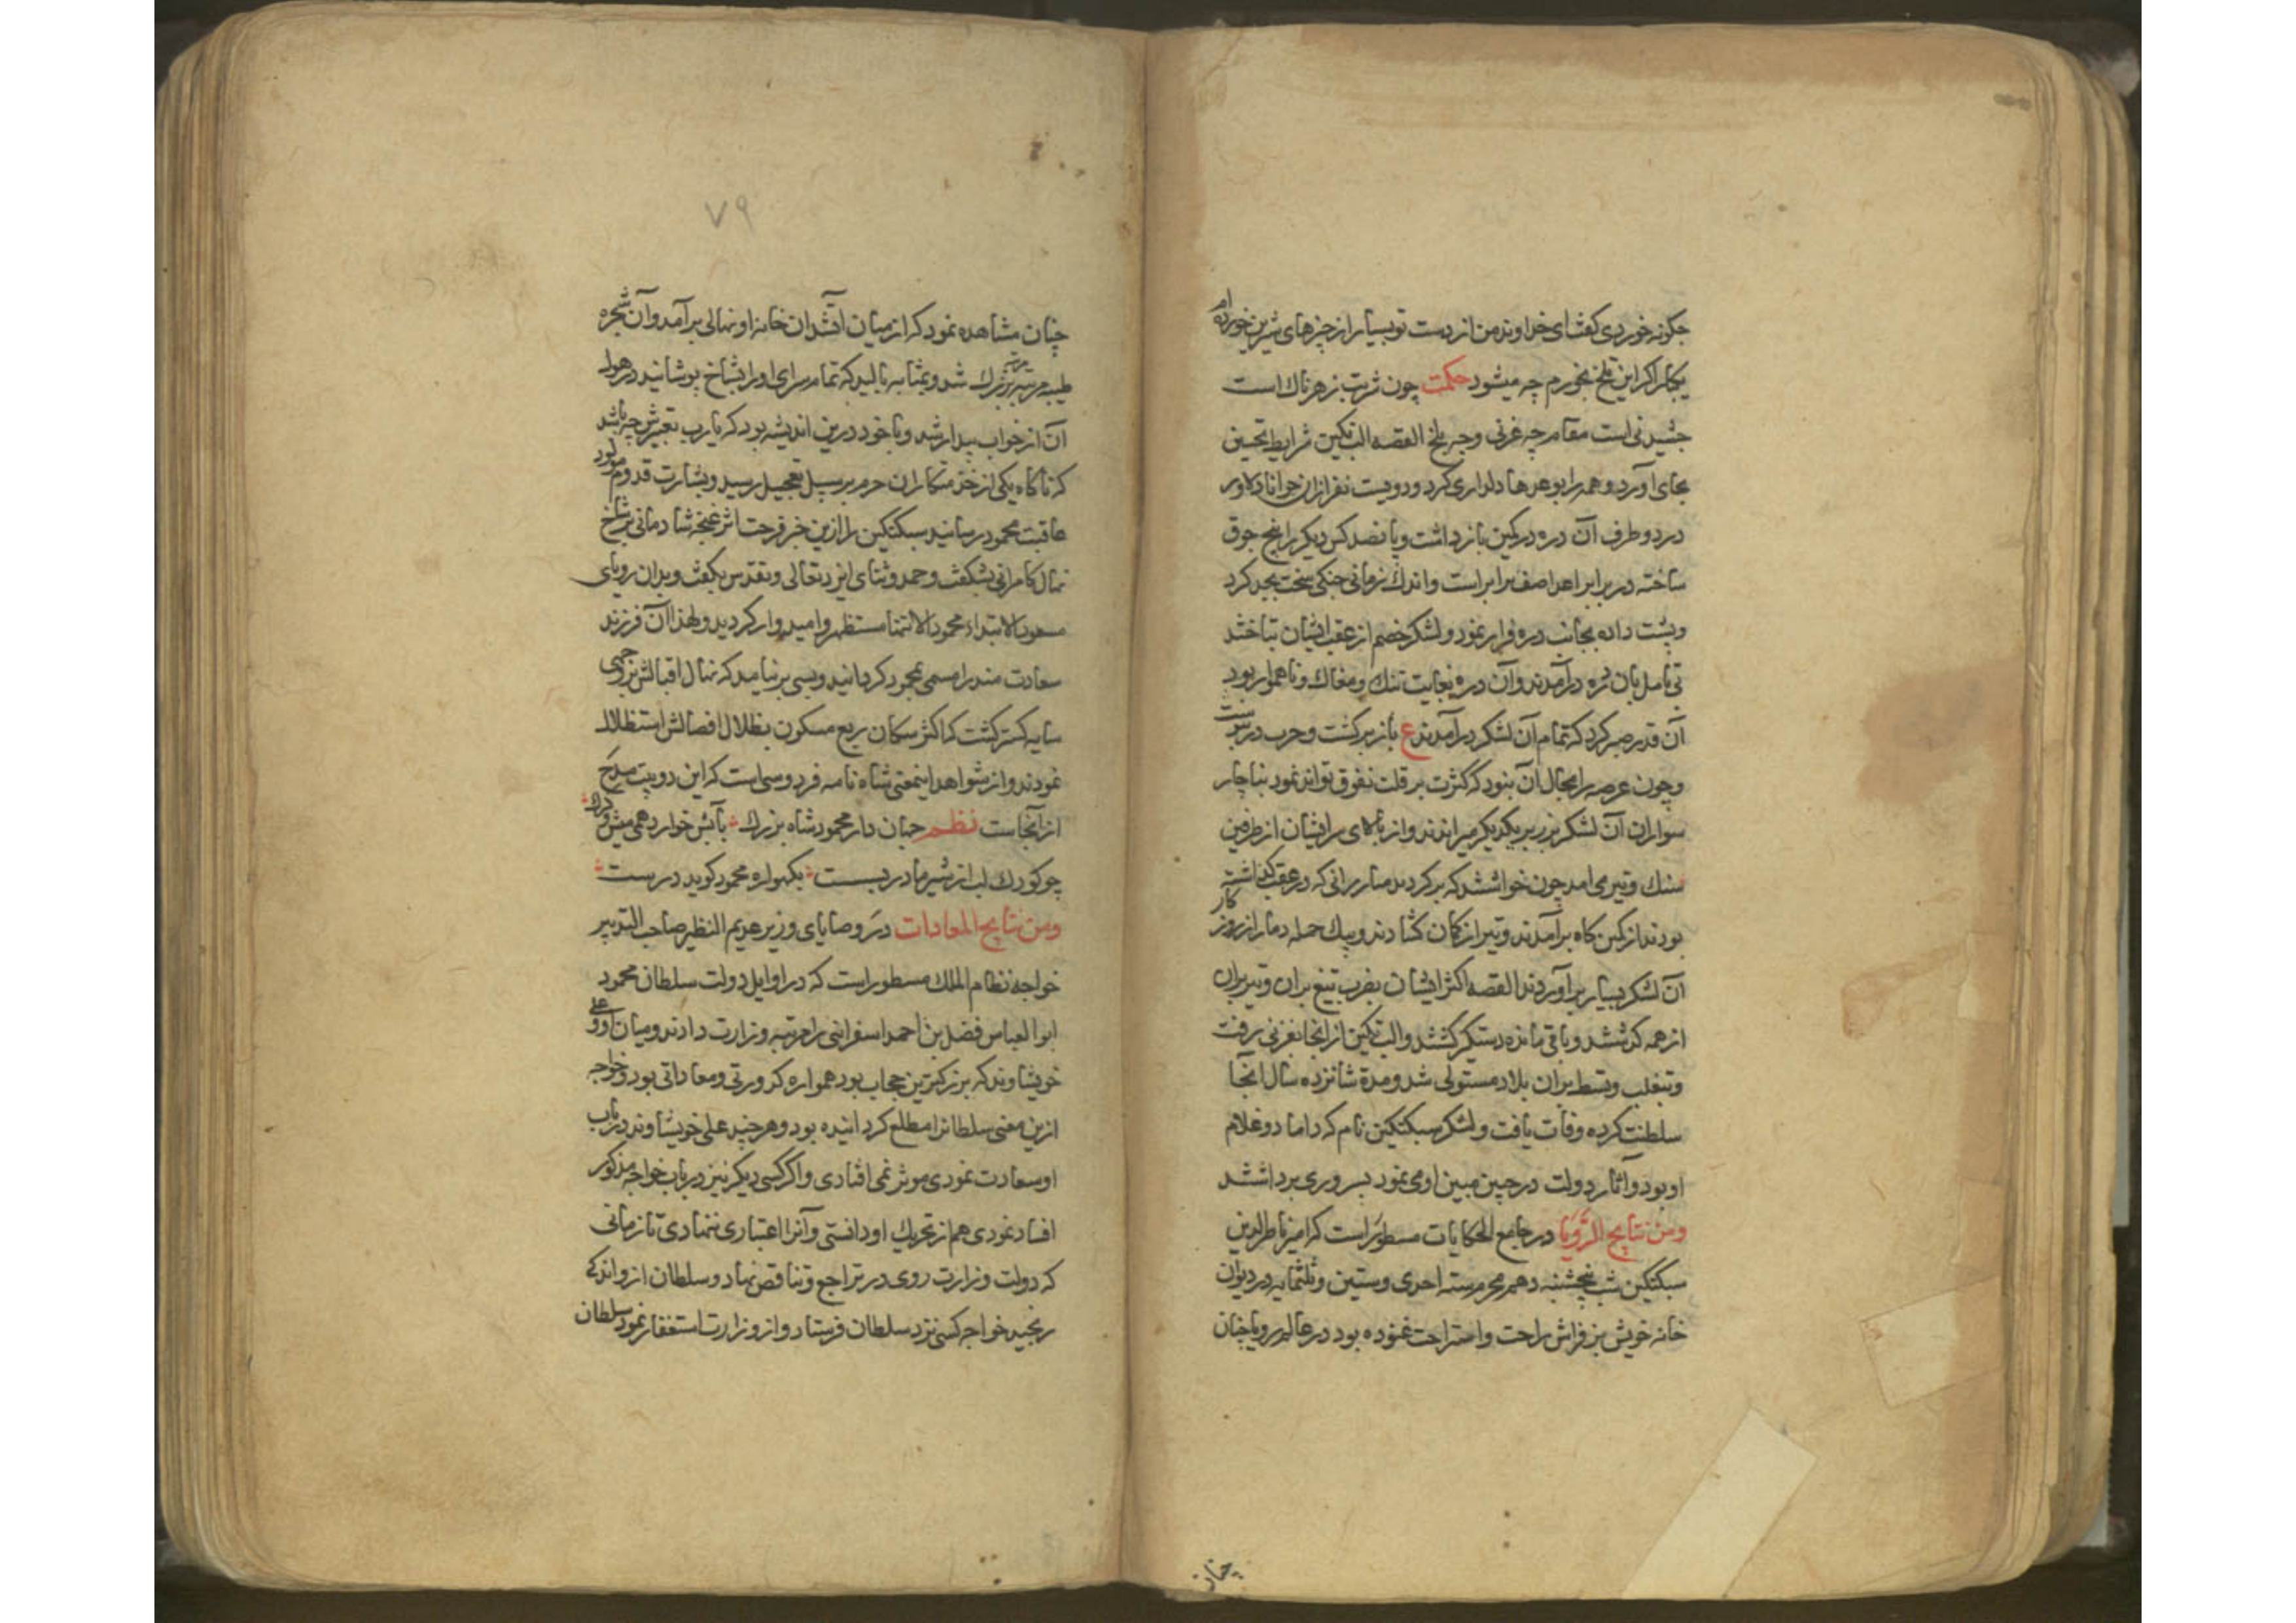 چکونه خوردی کفت ای خداوند من از دست تو بسیار از چیزهای شیرین خورده ام
یکبار اکر این تلخ بخورم چه میشود حکمت چون شربت زهرناک است
چشیدنی است مقام چه غزنی و چه بلخ القصه البتکین شرایط تحسین
بجای آورد و همه را بوعدها دلداری کرد و دویست نفر از ان جوانان دلاور
در دو طرف آن دره در کمین بازداشت و پانصد کس دیکر را پنج جوق
ساخته در برابر اعدا صف برابر است و اندک زمانی جنکی سخت بجد کرد
و پشت داده بجانب دره فرار نمود و لشکر خصم از عقب ایشان تاختند
بی تامل بان دره درآمدند و آن دره بغایت تنک و مغاک و ناهموار بود
آن قدر صبر کرد که تمام آن لشکر درآمدند ع باز برکشت و حرب در پیوست
و چون عرصه را مجال آن بنود که کثرت بر قلت تفوق تواند نمود بناچار
سواران آن لشکر بزیر یکدیکر میراندند و از بالای سر ایشان از طرفین
سنک و تیر می امد چون خواستند که برکردند مبارزانی که در عقب کذاشته
بودند از کمین کاه برآمدند و تیر از کمان کشادند و بیک حمله دمار از روز کار
آن لشکر بسیار برآوردند القصه اکثر ایشان بضرب تیغ بران و تیر پران
از همه کذشتند و باقی مانده دستکیر کشتند و البتکین از انجا بغزنی رفت
و بتغلب و تسلط بران بلاد مستولی شد و مدة شانزده سال انجا
سلطنت کرده وفات یافت و لشکر سبکتکین نام که داماد و غلام
او بود و آثار دولت در جبین مبین او می نمود بسروری برداشتند
ومن نتایج الرؤیا در جامع الحکایات مسطور است که امیر ناصرالدین
سبکتکین شب پنجشنبه دهم محرم سنه احدی و ستین و ثلثمایه در دیوان
خانه خویش بر فراش راحت و استراحت غنوده بود در عالم رویا چنان
چنان
۷۹
چنان مشاهده نمود که از میان آتشدان خانه او نهالی برآمد و آن شجره
طیبه مرتبه مرتبه بزرک شد و بمثابه بالید که تمام سرای او را بشاخ پوشانید در هول
آن از خواب بیدار شد و با خود درین اندیشه بود که یارب تعبیرش چه باشد
که ناکاه یکی از خدمتکاران حرم بر سبیل تعجیل رسید و بشارت قدوم مولود
عاقبت محمود رسانید سبکتکین را ازین خبر فرحت اثر غنچه شادمانی بر شاخ
نهال کامرانی بشکفت و حمد و ثنای ایزد تعالی و تقدس بکفت و بدان رویای
مسعود الابتداء محمود الانتها مستظهر و امیدوار کردید و لهذا آن فرزند
سعادت مند را مسمی بمحمود کردانید و بسی برنیامد که نهال اقبالش بر وجهی
سایه کستر کشت که اکثر سکان ربع مسکون بظلال افضالش استظلال
نمودند و از شواهد اینمعنی شاه نامه فردوسی است که این دو بیت مدح
از آنجاست نظم جهان دار محمود شاه بزرک بآبش خوارد همی میش و کرک
چو کودک لب از شیر مادر بشست بکهواره محمود کوید درست
ومن نتایج المعادات در وصایای وزیر عدیم النظیر صاحب التدبیر
خواجه نظام الملک مسطور است که در اوایل دولت سلطان محمود
ابوالعباس فضل بن احمد اسفراینی را مرتبه وزارت دادند و میان او و علی
خویشاوند که بزرکترین حجاب بود همواره کدورتی و معاداتی بود و خواجه
ازین معنی سلطانرا مطلع کردانیده بود و هرچند علی خویشاوند در باب
او سعادت نمودی موثر نمی افتادی و اکر کسی دیکر نیز در باب خواجه مذکور
افساد نمودی هم از تحریک او دانستی و آنرا اعتباری ننهادی تا زمانی
که دولت وزارت روی در تراجع و تناقص نهاد و سلطان از و اندکی
رنجید خواجه کسی نزد سلطان فرستاد و از وزارت استعفا نمود سلطان